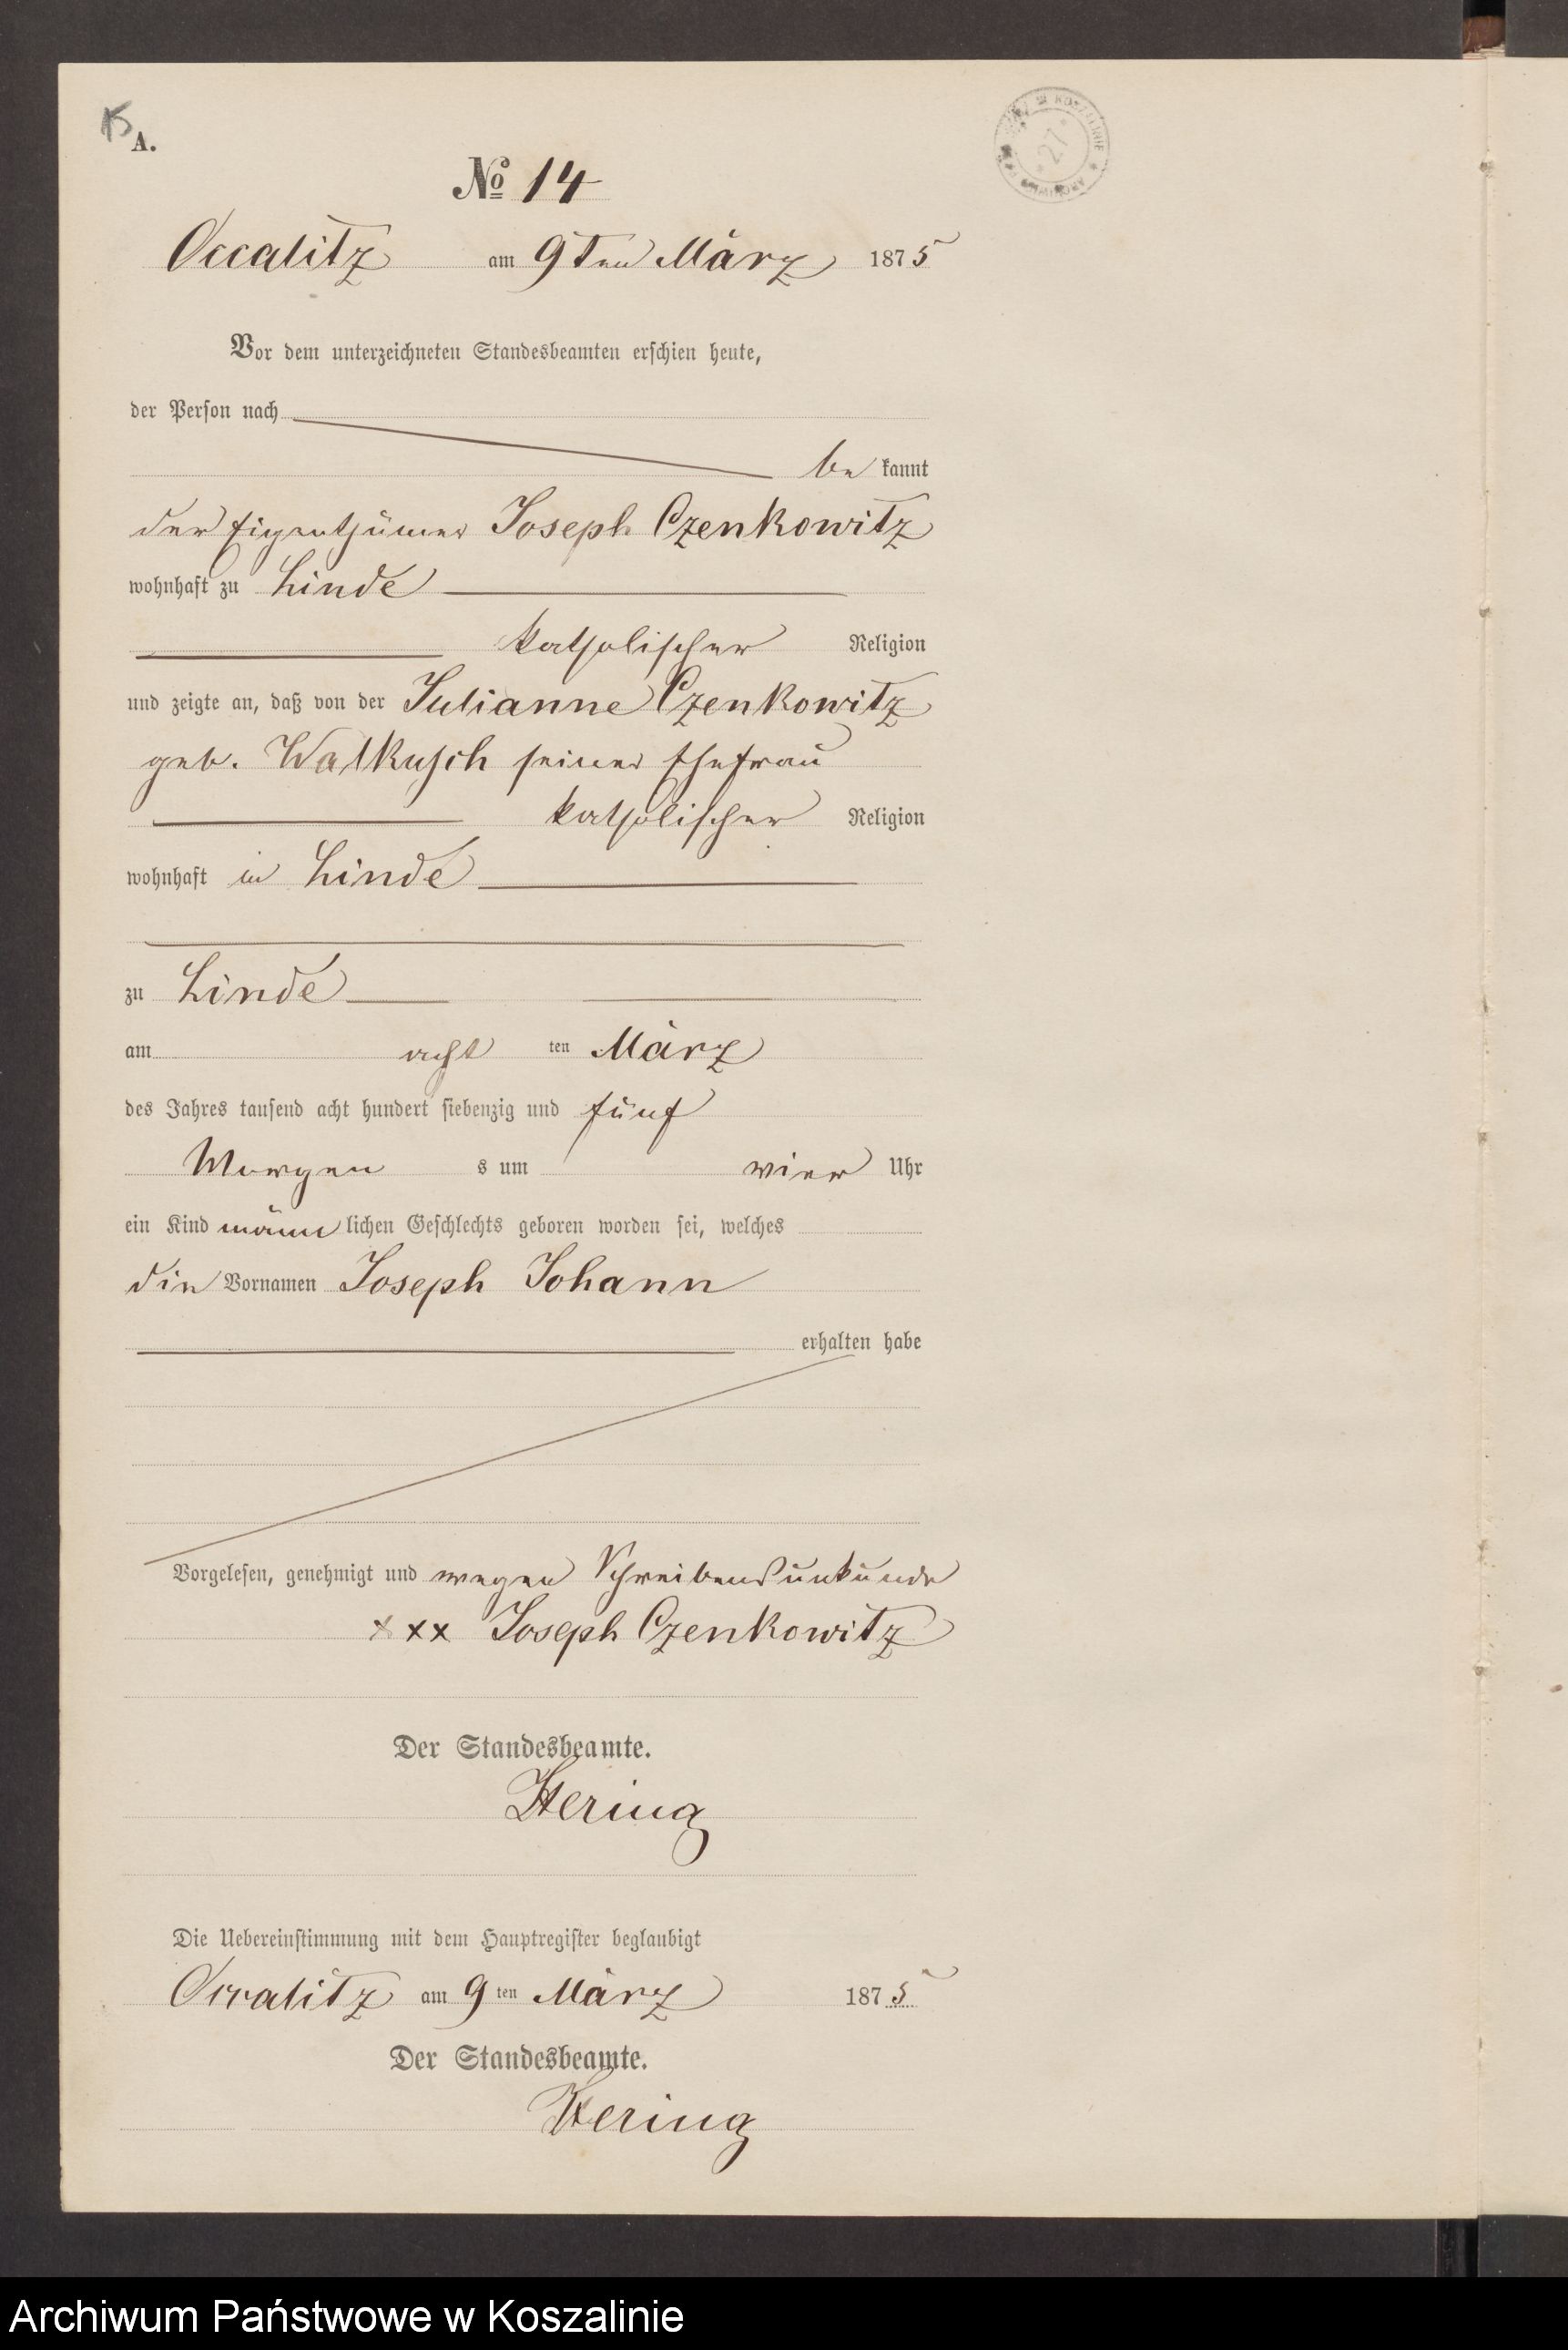 15
A.
№ 14
Occalitz am 9ten März 1875
Vor dem unterzeichneten Standesbeamten erschien heute,
der Person nach
be kannt
der Eigenthümer Joseph Czenkowitz
wohnhaft zu Linde
katholischer Religion
und zeigte an, daß von der Julianne Czenkowitz
geb. Walkusch seiner Ehefrau
katholischer Religion
wohnhaft in Linde
zu Linde
am acht ten März
des Jahres tausend acht hundert siebenzig und fünf
Morgen s um vier Uhr
ein Kind männ lichen Geschlechts geboren worden sei, welches
die Vornamen Joseph Johann
erhalten habe
Vorgelesen, genehmigt und wegen Schreibensunkunde
xxx Joseph Czenkowitz
Der Standesbeamte.
Hering
Die Uebereinstimmung mit dem Hauptregister beglaubigt
Occalitz am 9 ten März 1875
Der Standesbeamte.
Hering
Archiwum Państwowe w Koszalinie